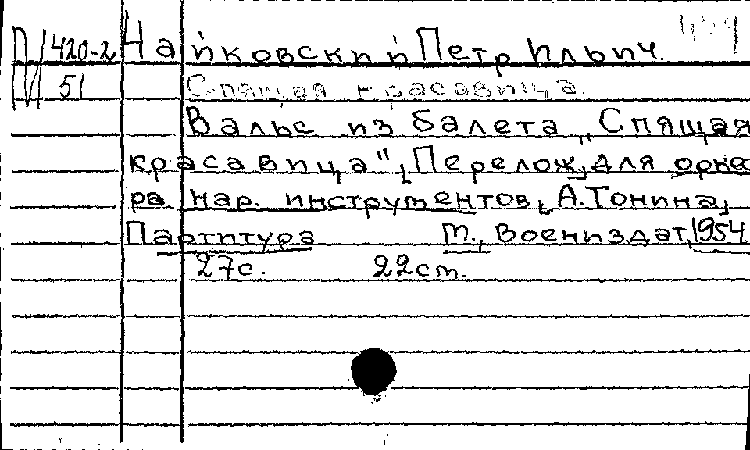 П 420-2 Чайковский Петр Ильич.
И 51 Спящая красавица.
Вальс из балета „Спящая
красавица", Перелож. для орке
ра нар. инструментов, А. Тонина,
Партитура М., Воениздат, 1954
27с. 22см.